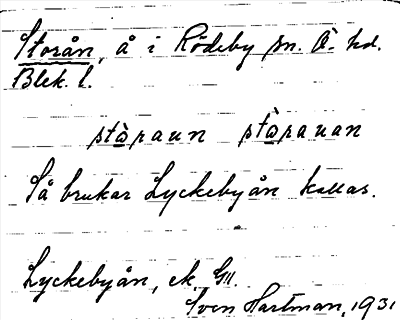 Storån, å i Rödeby sn. Ö. hd.
Blek. l.
stàraun stàrauan
Så brukar Lyckebyån kallas.
Lyckebyån, ek. Gll.
Sven Hartman, 1931